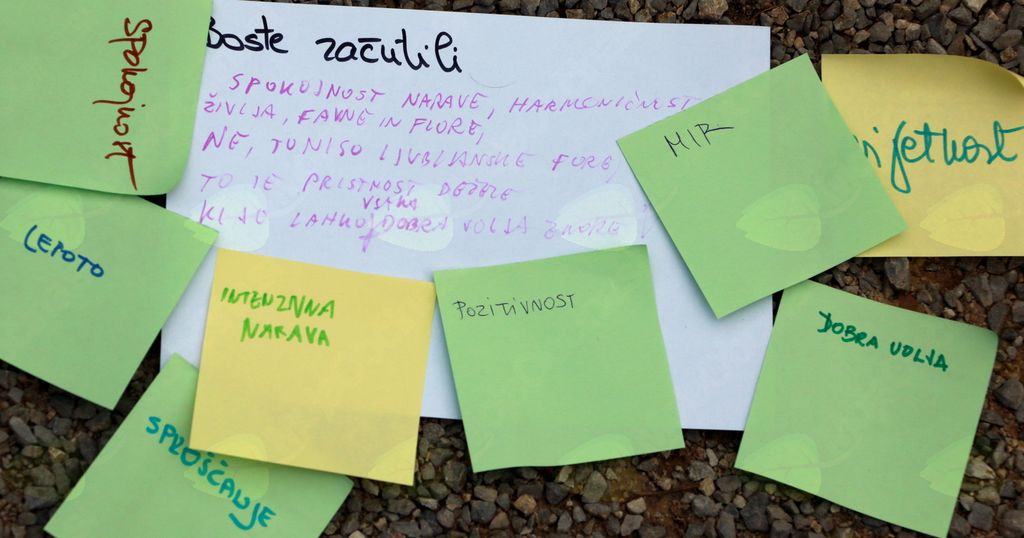 Spokojnost
boste začutili
SPOKOJNOST NARAVE, HARMONIČNOST
ŽIVLJA, FAVNE IN FLORE,
NE, TO NISO LJUBLJANSKE FORE,
TO JE PRISTNOST DEŽELE
VSAKA
KI JO LAHKO DOBRA VOLJA ZMORE!
MIR
ijetnost
LEPOTO
INTENZIVNA
NARAVA
POZITIVNOST
DOBRA VOLJA
SPROŠČANJE